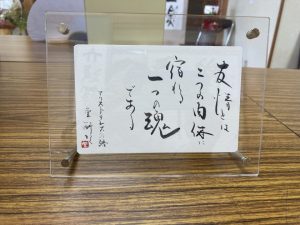 友情とは
二つの肉体に
宿れる
一つの魂
である
アリストテレスの